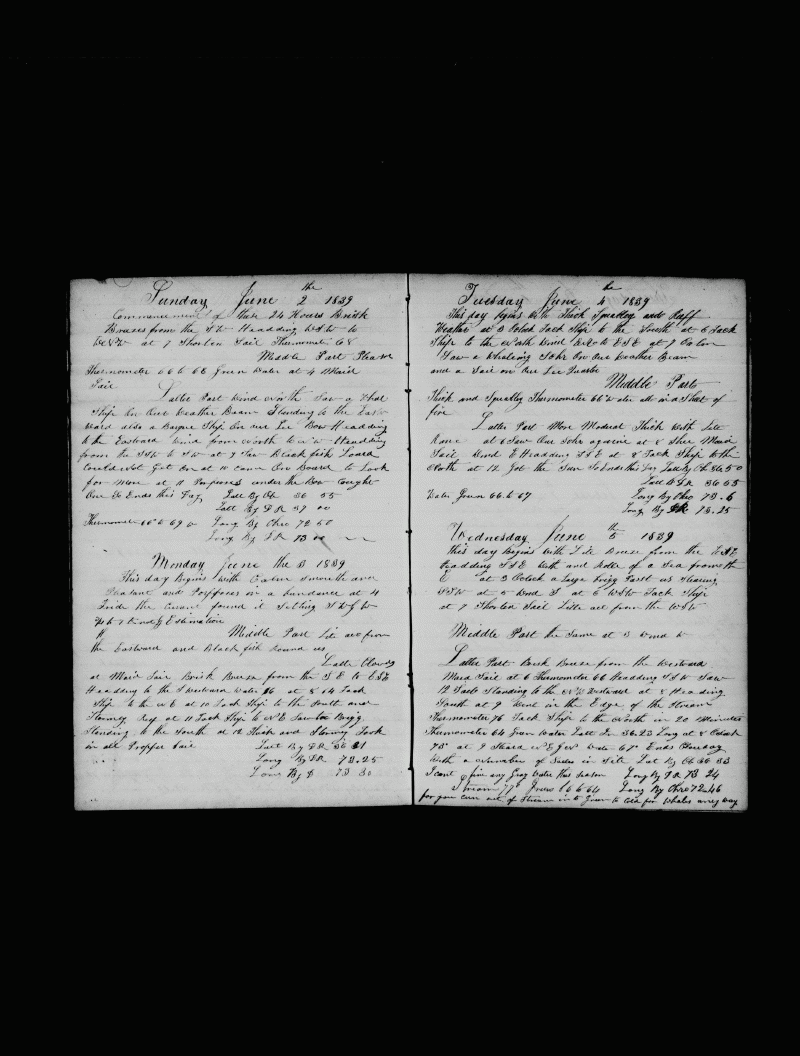 Sunday June 2 the 1839
Commencement of these 24 Hours Brisk
Breases from the SW Heading WSW to
WNW at 7 Shorten Sail Thermometer 68
Middle Part Please
Thermometer 66 to 68 Green Water at 4 Maid
Sail
Latter Part Wind North Saw a Whal
Ship On Our Weather Beam Standing to the East
ward also a Barque Ship On our Lee Bow Heading
to the Eastward Wind from North to NW Standing
from the SSW to SW at 9 Saw Black fish Loard
Could Not Get On at 10 came On Board to Look
for More at 11 Porpuses under the Bow Caught
One So Ends this Day Latt By Ob 36 55
Latt By DR 37 00
Thermometer 66 to 69 Long By Chro 72 50
Long By DR 73 00
Monday June the 3 1839
This day Begins with Calm Smooth and
Pleasant and Porposes in a bundance at 4
Tride the Curant found it Setting SW by W
Knots by Estimation
Middle Part Lite air from
the Eastward and Black fish Round us
Latter Clowdy
at Maid Sail Brisk Breese from the SE to ESE
Heading to the Southward Water 76 at 8 Tack
Ship to the NE at 10 Tack Ship to the South and
Stormy at 11 Tack Ship to NE Saw Brigg
Standing to the South at 12 Thick and Stormy Took
in all Propper Sail Latt By DR 36 21
Long By DR 73.25
Long By 73 30
Tuesday June 4 the 1839
This day begins With Thick Squalley and Ruff
Weather at 3 Oclock Tack Ship to the South at 6 Tack
Ship to the North Wind to ESE at 7
Saw a Whaleing Schr On Our Weather Beam
and a Sail on Our Lee Quarter
Middle Part
Thick and Squalley Thermometer 66 Water all in a Sheet of
fire
Latter Part More Moderat Thick With Lite
Rane at 6 Saw Our Schr againe at 8 Maid
Sail Wind E Heading SSE at 8 Tack Ship to the
North at 12 Got the Sun So Ends this Day Latt By Ob 36.50
Latt By DR 36 55
Water Green 66 to 67 Long By Chro 73.6
Long By DR 73.25
Wednesday June 5 th 1839
This day Begins With Lite Breese from the
Heading SSE With and of a Sea from th
E at 3 Oclock a Large Brigg Past us Stearing
SSW at 5 Wind S at 6 WSW Tack Ship
at 7 Shorten Sail Lite air from the WSW
Middle Part the Same at 3 Wind W
Latter Part Brisk Breese from the Westward
Maid Sail at 6 Thermometer 68 Heading SSW Saw
12 Sails Standing to the Westward at 8 Heading
South at 9 Went in the Edge of the Stream
Thermometer 76 Tack Ship to the North in 20 Minutes
Thermometer 64 Green Water Latt In 36.23 Long at 8 Oclock
73 at 9 Water 67 Ends Cloudy
With a Number of Sails in Site Lat By Ob 36 33
I cant find any Gray Water this Season Long By DR 73 24
Stream 77 Green 66 to 64 Long By Chro 72.46
for you can out of Stream into Green to Cold for Whales any way